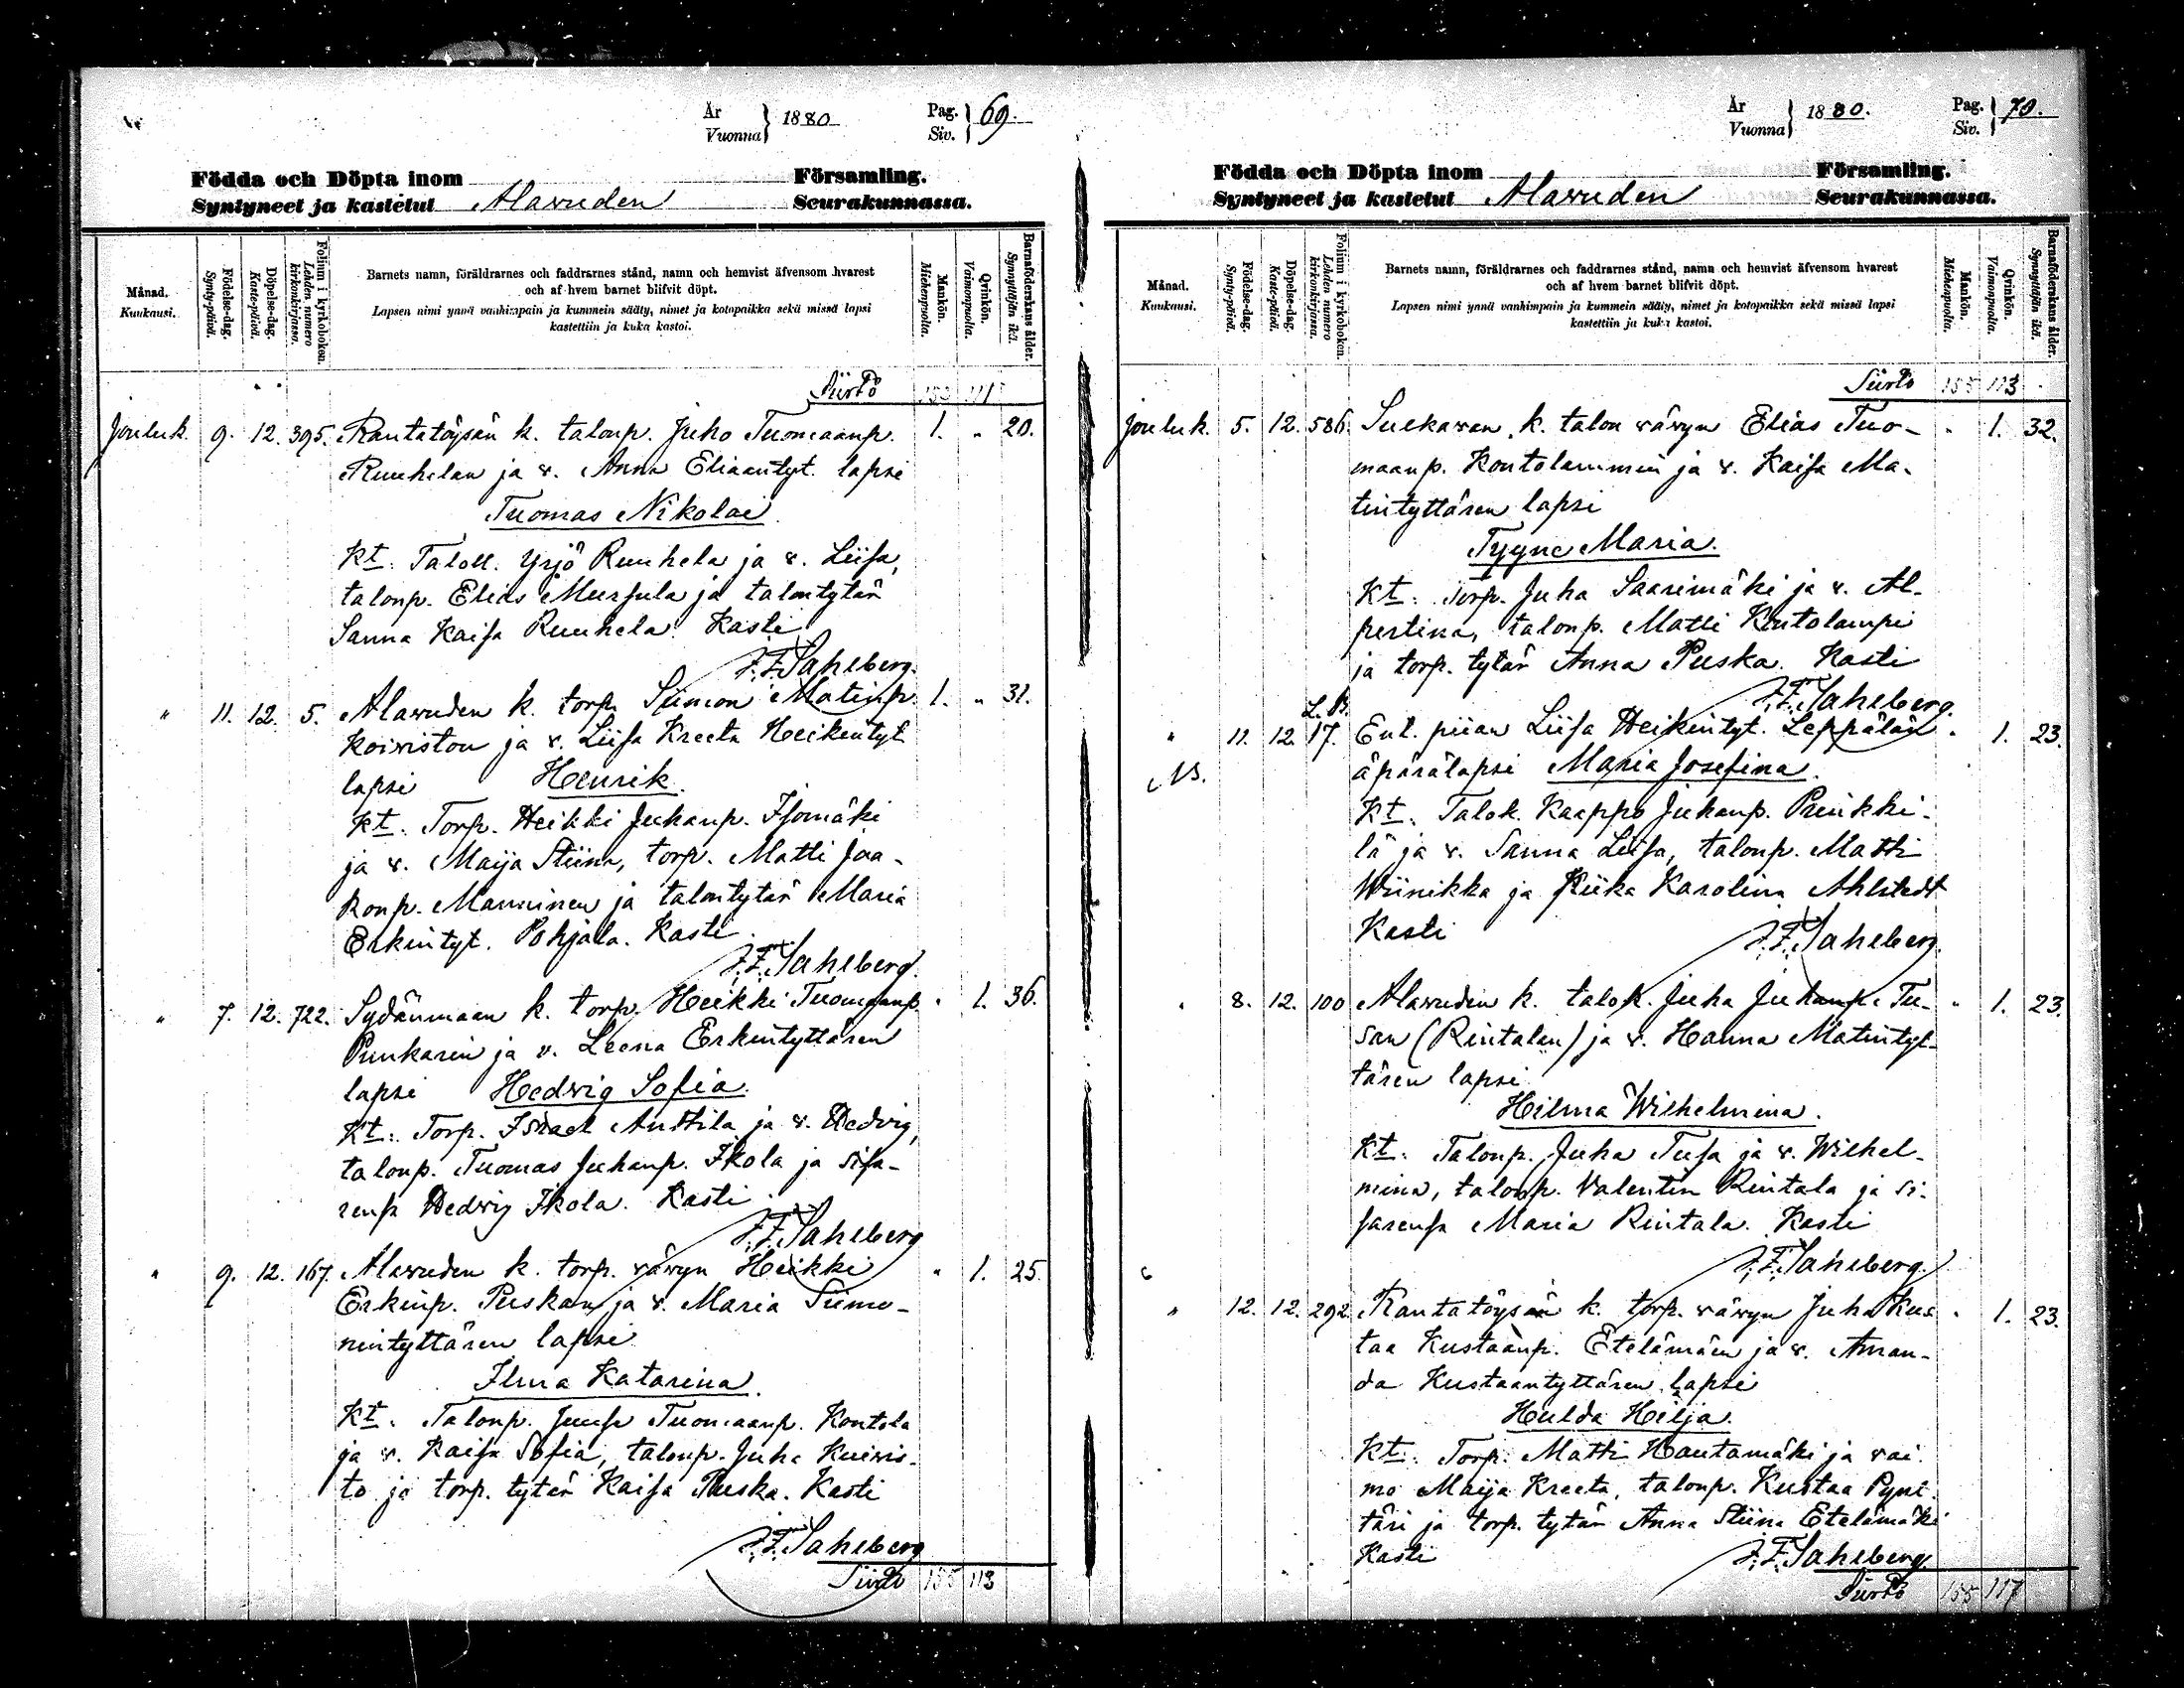 År
Vuonna } 1880
Pag.
Siv. } 69.
Födda och Döpta inom Församling.
Syntyneet ja kastetut Alavuden Seurakunnassa.
Månad.
Kuukausi.
Födelse-dag.
Synty-päivä.
Döpelse-dag.
Kaste-päivä.
Folium i kyrkoboken.
Lehden numero kirkonkirjassa.
Barnets namn, föräldrarnes och faddrarnes stånd, namn och hemvist äfvensom hvarest
och af hvem barnet blifvit döpt.
Lapsen nimi ynnä vanhimpain ja kummein sääty, nimet ja kotopaikka sekä missä lapsi
kastettiin ja kuka kastoi.
Mankön.
Miehenpuolta.
Qvinkön.
Vaimonpuolta.
Barnaföderskans ålder.
Synnyttäjän ikä.
Siirto 153 111
Jouluk. 9. 12. 395. Rantatöysän k. talonp. Juho Tuomaanp. 1. " 20.
Ruuhelan ja v. Anna Eliaantyt. lapsi
Tuomas Nikolai
Kt: Taloll. Yrjö Ruuhela ja v. Liisa,
talonp. Elias Mursula ja talontytär
Sanna Kaisa Ruuhela. Kasti
F.F. Sahlberg.
" 11. 12. 5. Alavuden k. torp. Siimon Matinp. 1. " 31.
Koiviston ja v. Liisa Kreeta Heikintyt
lapsi Henrik.
Kt. Torp. Heikki Juhanp. Isomäki
ja v. Maija Stiina, torp. Matti Jaa-
konp. Manninen ja talontytär Maria
Erkintyt. Pohjala. Kasti
F.F. Sahlberg.
" 7. 12. 722. Sydänmaan k. torp. Heikki Tuomaanp. " 1. 36.
Punkarin ja v. Leena Erkintyttären
lapsi Hedvig Sofia.
Kt: Torp. Israel Anttila ja v. Hedvig,
talonp. Tuomas Juhanp. Ikola ja sisa-
rensa Hedvig Ikola. Kasti
F.F. Sahlberg
" 9. 12. 167. Alavuden k. torp. vävyn Heikki " 1. 25.
Erkinp. Puskan ja v. Maria Siimo-
nintyttären lapsi
Ilma Katarina.
Kt. Talonp. Juuse Tuomaanp. Kontola
ja v. Kaisa Sofia, talonp. Juha Kuivis-
to ja torp. tytär Kaisa Puska. Kasti
F.F. Sahlberg
Siirto 155 113
År
Vuonna } 1880.
Pag.
Siv. } 70.
Födda och Döpta inom Församling.
Syntyneet ja kastetut Alavuden Seurakunnassa.
Månad.
Kuukausi.
Födelse-dag.
Synty-päivä.
Döpelse-dag.
Kaste-päivä.
Folium i kyrkoboken.
Lehden numero kirkonkirjassa.
Barnets namn, föräldrarnes och faddrarnes stånd, namn och hemvist äfvensom hvarest
och af hvem barnet blifvit döpt.
Lapsen nimi ynnä vanhimpain ja kummein sääty, nimet ja kotopaikka sekä missä lapsi
kastettiin ja kuka kastoi.
Mankön.
Miehenpuolta.
Qvinkön.
Vaimonpuolta.
Barnaföderskans ålder.
Synnyttäjän ikä.
Siirto 155 113
Jouluk. 5. 12. 586. Sulkavan k. talon vävyn Elias Tuo- " 1. 32.
maanp. Kontolammin ja v. Kaisa Ma-
tintyttären lapsi
Tyyne Maria.
Kt: Torp. Juha Saarimäki ja v. Al-
pertina, talonp. Matti Kontolampi
ja torp. tytär Anna Puska. Kasti
F.F. Sahlberg.
" 11. 12. L.K. 17. Ent. piian Liisa Heikintyt. Leppälän " 1. 23.
äpärälapsi Maria Josefina.
Kt. Talok. Kaappo Juhanp. Prinkki-
lä ja v. Sanna Liisa, talonp. Matti
Wiinikka ja Riika Karolina Ahlstedt
Kasti F.F. Sahlberg.
" 8. 12. 100 Alavuden k. talok. Juha Juhanp. Tu- " 1. 23.
san (Rintalan) ja v. Hanna Matintyt-
tären lapsi
Hilma Wilhelmina.
Kt: Talonp. Juha Tusa ja v. Wilhel-
mina, talonp. Valentin Rintala ja si-
sarensa Maria Rintala. Kasti
F.F. Sahlberg.
" 12. 12. 292. Rantatöysän k. torp. vävyn Juha Kus- " 1. 23.
taa Kustaanp. Etelämäen ja v. Aman-
da Kustaantyttären lapsi
Hulda Hilja.
Kt: Torp. Matti Hautamäki ja vai-
mo Maija Kreeta, talonp. Kustaa Pynt-
täri ja torp. tytär Anna Stiina Etelämäki
Kasti F.F. Sahlberg.
Siirto 155 117